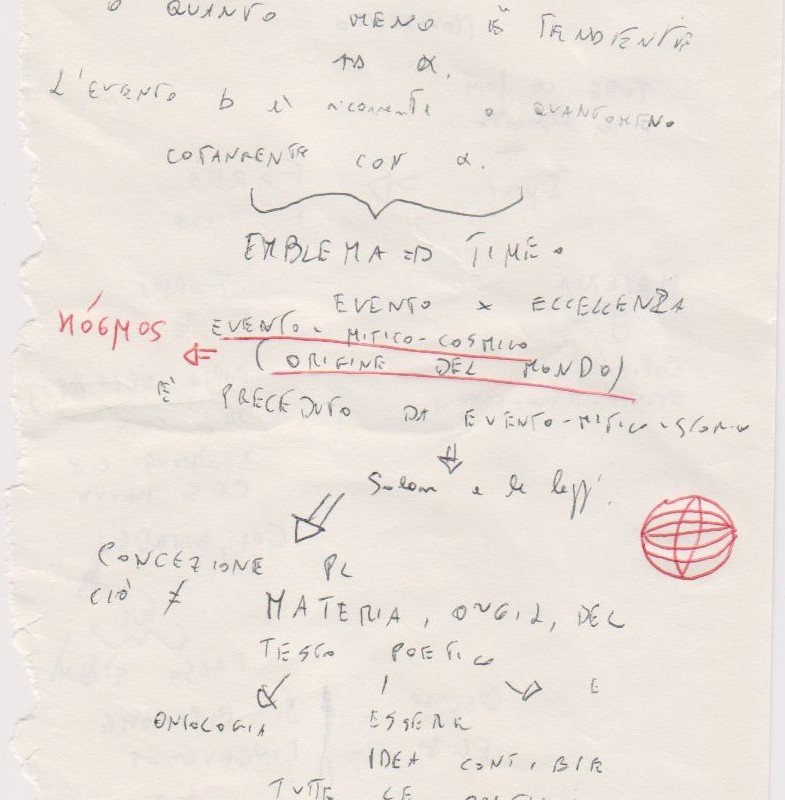 O QUANTO MENO È TENDENTE
AD α.
L'EVENTO b è ricorrente o QUANTOMENO
COTANGENTE CON α.
EMBLEMA ⇒ TIMEO
EVENTO x ECCELLENZA
KÓSMOS ⇐ EVENTO - MITICO-COSMICO
(ORIGINE DEL MONDO)
È PRECEDUTO DA EVENTO-MITICO-STORICO
⇓
Solon e le leggi.
CONCEZIONE PL
CIÒ ≠ MATERIA, ORIGI, DEL
TESTO POETICO
E
ONTOLOGIA ESSERE
IDEA
TUTTE LE